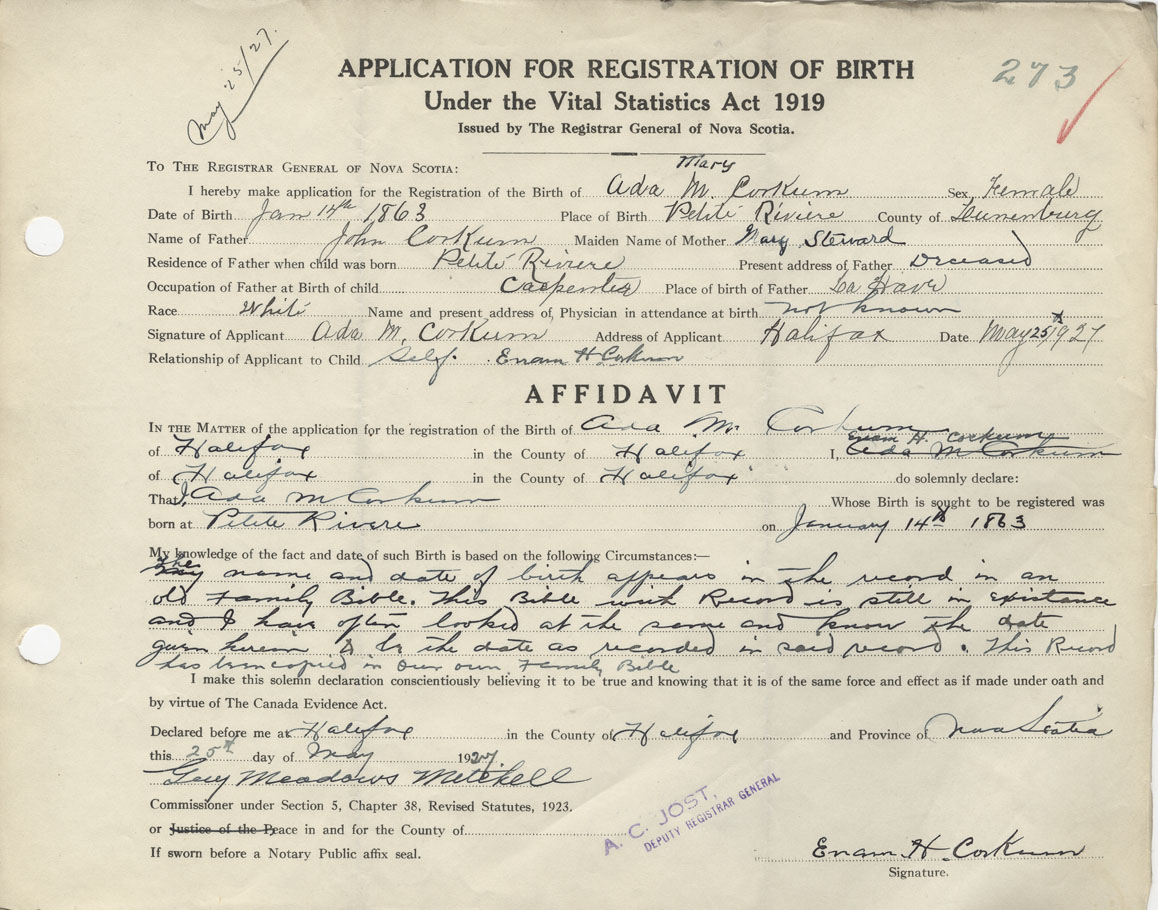 May 25/27.
273
APPLICATION FOR REGISTRATION OF BIRTH
Under the Vital Statistics Act 1919
Issued by The Registrar General of Nova Scotia.
To The Registrar General of Nova Scotia:
Mary
I hereby make application for the Registration of the Birth of Ada M. Corkum Sex Female
Date of Birth Jan 14th 1863 Place of Birth Petite Rivière County of Lunenburg
Name of Father John Corkum Maiden Name of Mother Mary Steward
Residence of Father when child was born Petite Riviere Present address of Father Deceased
Occupation of Father at Birth of child Carpenter Place of birth of Father La Have
Race White Name and present address of Physician in attendance at birth not known
Signature of Applicant Ada M. Corkum Address of Applicant Halifax Date May 25th 1927
Relationship of Applicant to Child Self. Enam H Corkum
AFFIDAVIT
In the Matter of the application for the registration of the Birth of Ada M. Corkum
Enam H. Corkum
of Halifax in the County of Halifax I, Ada M Corkum
of Halifax in the County of Halifax do solemnly declare:
That I, Ada M Corkum Whose Birth is sought to be registered was
born at Petite Rivere on January 14th 1863
My knowledge of the fact and date of such Birth is based on the following Circumstances:—
The
My name and date of birth appears in the record in an
old Family Bible. This Bible with Record is still in existance
and I have often looked at the same and know the date
given herein to be the date as recorded in said record. This Record
has been copied in our own Family Bible
I make this solemn declaration conscientiously believing it to be true and knowing that it is of the same force and effect as if made under oath and
by virtue of The Canada Evidence Act.
Declared before me at Halifax in the County of Halifax and Province of Nova Scotia
this 25th day of May 1927
Guy Meadows Mitchell
Commissioner under Section 5, Chapter 38, Revised Statutes, 1923.
or Justice of the Peace in and for the County of
If sworn before a Notary Public affix seal.
A. C. JOST,
DEPUTY REGISTRAR GENERAL
Enam H. Corkum
Signature.